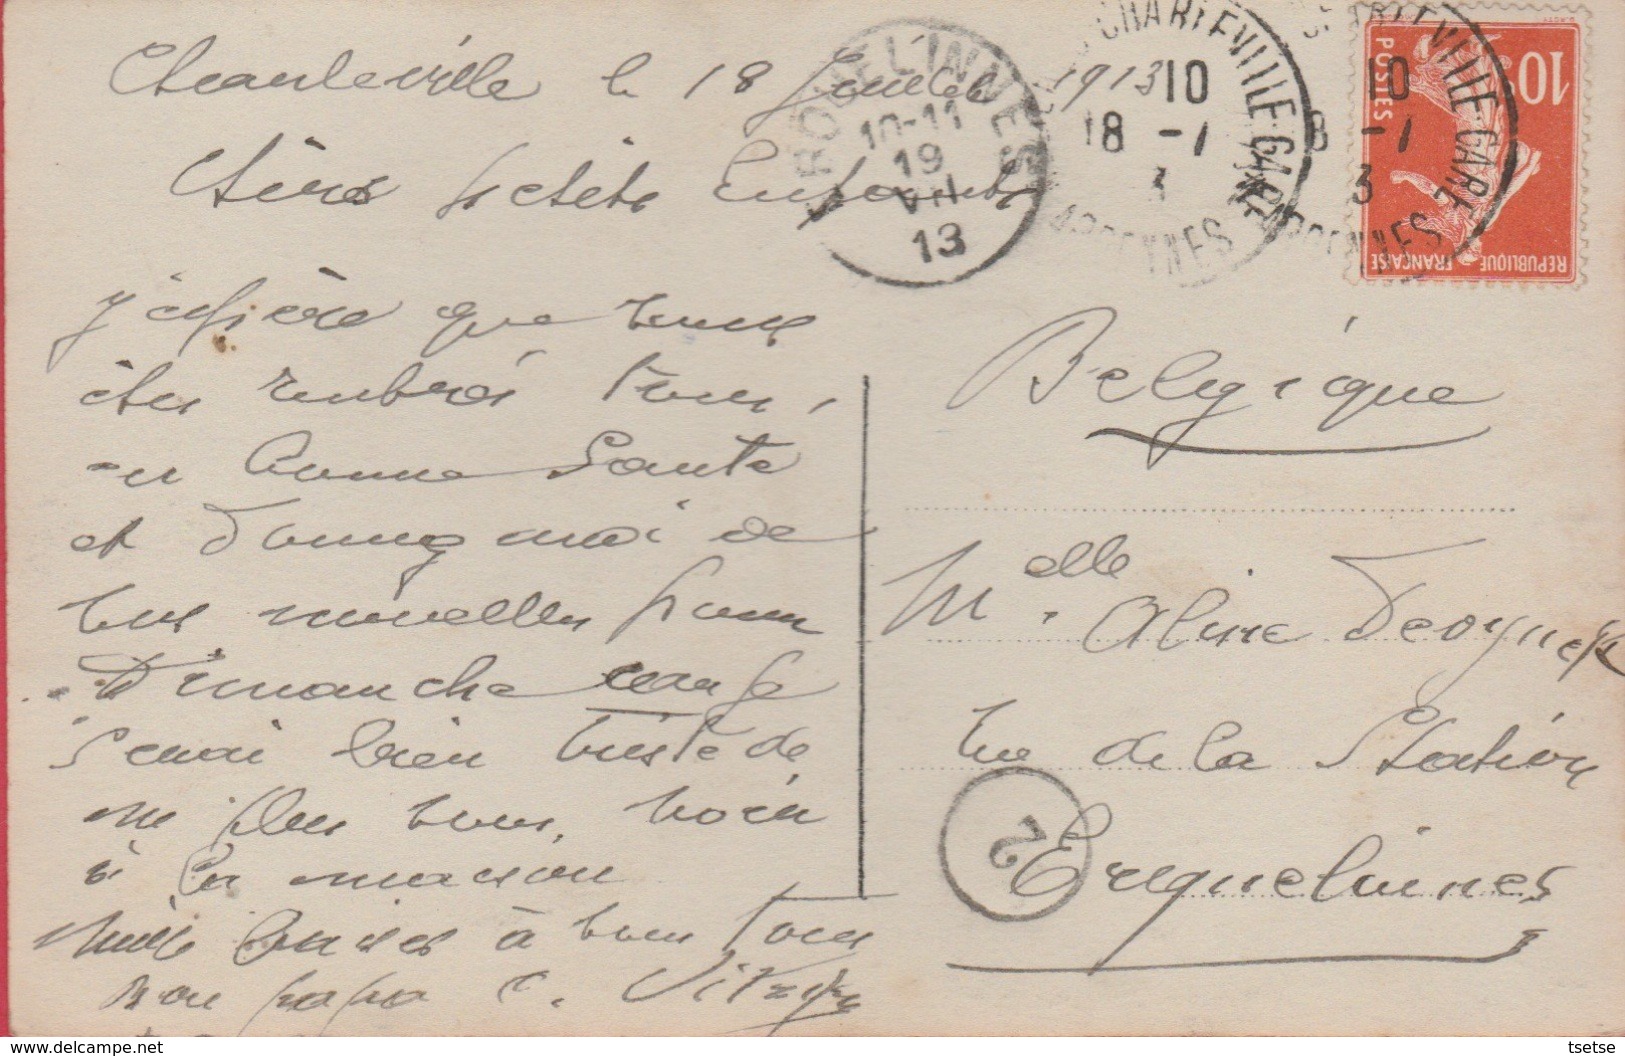 Charleville le 18 Juillet 1913
Chères petites Enfants
J'espère que vous
êtes rentrés tous,
en bonne Santé
et Donnez moi de
vos nouvelles pour
Dimanche car je
serai bien triste de
ne plus vous voir
à la maison
Mille Baises à vous tous
Bon papa C.
ERQUELINNES
10-11
19
VII
13
CHARLEVILLE-GARE
10
18 -1
3
ARDENNES
CHARLEVILLE-GARE
10
18 -1
3
ARDENNES
10
POSTES
REPUBLIQUE FRANÇAISE
Belgique
Melle Aline
rue de la Station
2
Erquelinnes
delcampe.net
tsetse